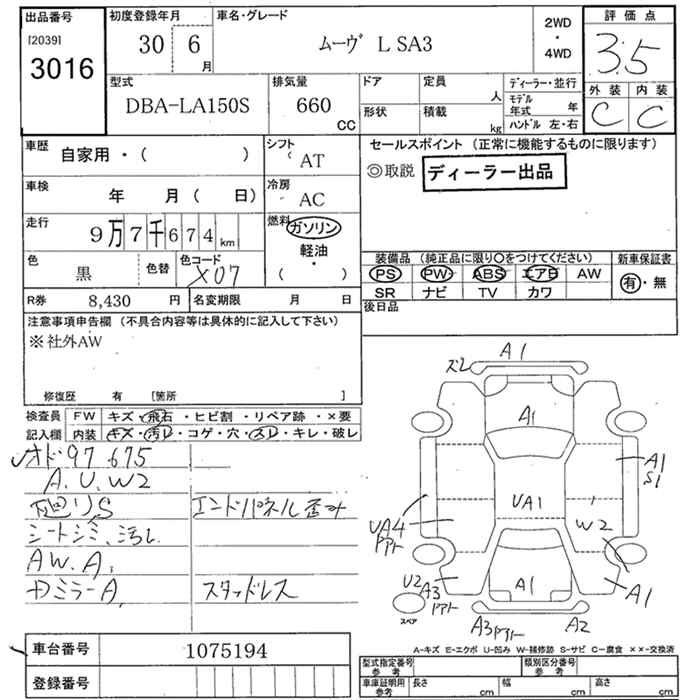 出品番号
[2039]
3016
初度登録年月
30 6 月
車名・グレード
ムーヴ L SA3
2WD
・
4WD
評価点
3.5
外装 内装
C C
型式
DBA-LA150S
排気量
660 CC
ドア
形状
定員 人
積載 kg
ディーラー・並行
モデル年式 年
ハンドル 左・右
車歴
自家用・( )
シフト
AT
車検
年 月( 日)
冷房
AC
走行
9万7千674km
燃料
ガソリン
軽油
・
( )
色
黒
色替
色コード
X07
R券 8,430 円
名変期限 月 日
セールスポイント (正常に機能するものに限ります)
◎取説 ディーラー出品
装備品 (純正品に限り○をつけてください)
新車保証書
PS PW ABS エアB AW
有・無
SR ナビ TV カワ
後日品
注意事項申告欄 (不具合内容等は具体的に記入して下さい)
※社外AW
修復歴 有 [箇所 ]
検査員 FW キズ・飛石・ヒビ割・リペア跡・×要
記入欄 内装 キズ・汚レ・コゲ・穴・スレ・キレ・破レ
オド 97675
A.U.W2
廻リS
エンドパネル歪み
シートシミ、汚レ
AW.A,
ミラーA,
スタッドレス
ズ2 A1
A1
A1
S1
UA1
UA4
アト
W2
U2 A3
アト
A1
A1
スペア
A3アト A2
A-キズ E-エクボ U-凹み W-補修跡 S-サビ C-腐食 ××-交換済
車台番号 1075194
登録番号
型式指定番号
参考
類別区分番号
参考
車庫証明用
参考
長さ cm 幅 cm 高さ cm